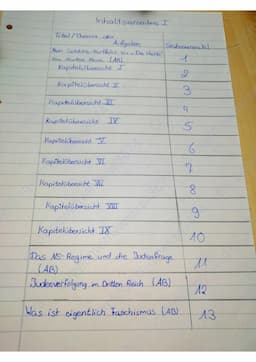 Inhaltsverzeichnis I
Titel/Thema der Aufgaben Seitenanzahl
Mein Gedankenverlauf zu „Die Welle“
im dritten Reich (AB) 1
Kapitelübersicht I 2
Kapitelübersicht II 3
Kapitelübersicht III 4
Kapitelübersicht IV 5
Kapitelübersicht V 6
Kapitelübersicht VI 7
Kapitelübersicht VII 8
Kapitelübersicht VIII 9
Kapitelübersicht IX 10
Das NS-Regime und die Judenfrage
(AB) 11
Judenverfolgung im Dritten Reich (AB) 12
Was ist eigentlich Faschismus (AB) 13